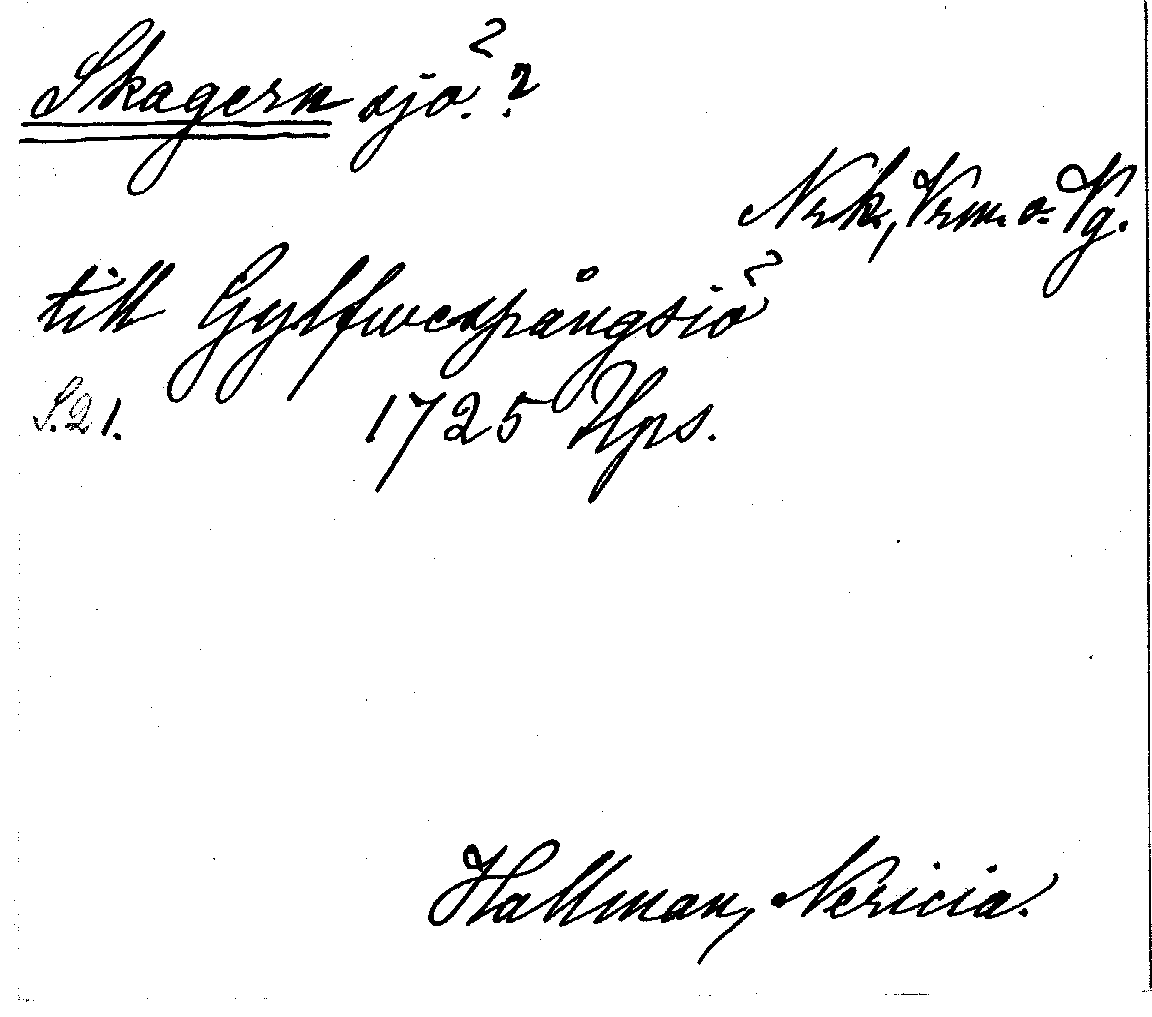 Skagern sjö. ?
Nrk., Vrm. o. Vg.
till Gylfwespångsiö
S. 21. 1725 Ups.
Hallman, Nericia.